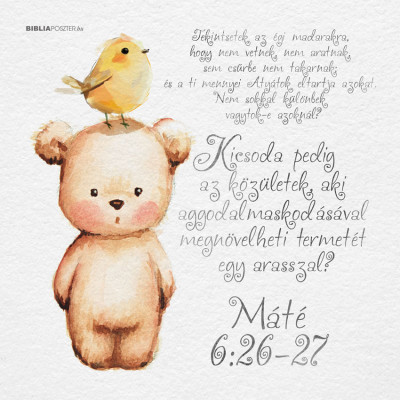 BIBLIAPOSZTER.hu
Tekintsetek az égi madarakra,
hogy nem vetnek, nem aratnak,
sem csűrbe nem takarnak,
és a ti mennyei Atyátok eltartja azokat.
Nem sokkal különbek
vagytok-e azoknál?
Kicsoda pedig
az közületek, aki
aggodalmaskodásával
megnövelheti termetét
egy arasszal?
Máté
6:26-27